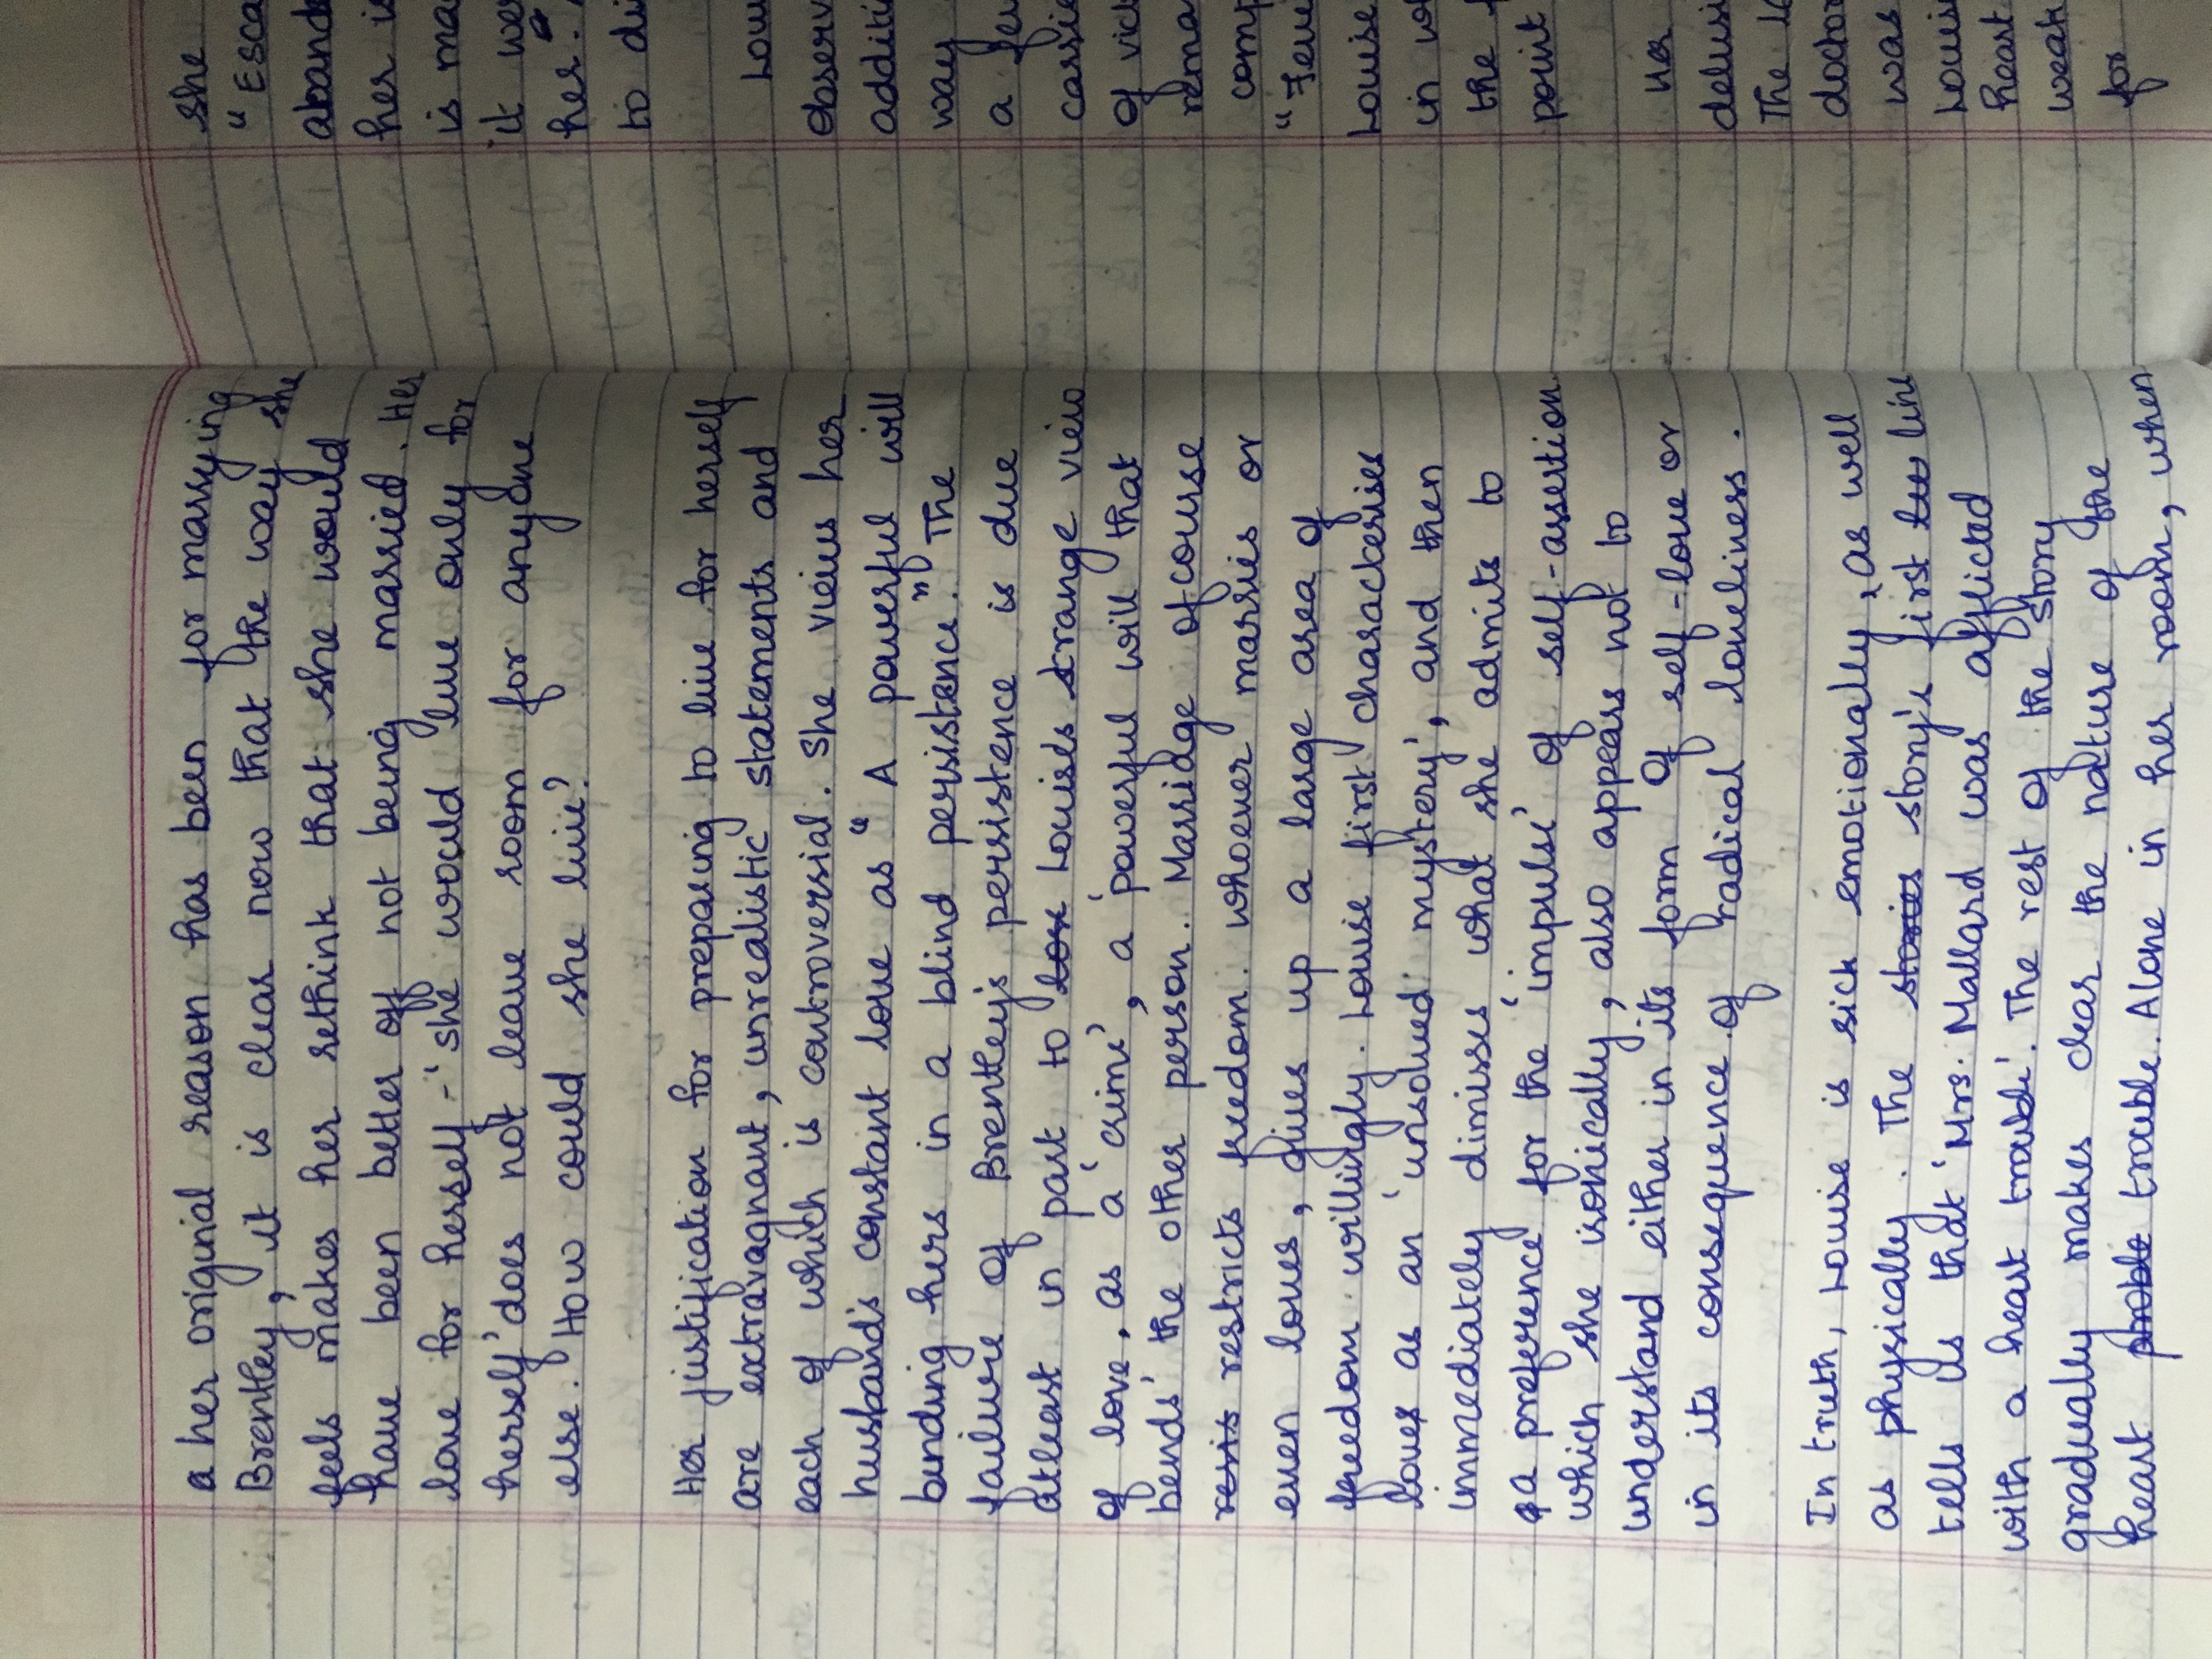 a her original reason has been for marrying
Brentley, it is clear now that the way she
feels makes her rethink that she would
have been better off not being married. Her
love for herself - 'she would live only for
herself' does not leave room for anyone
else. How could she live?
Her justification for preparing to live for herself
are extravagnant, unrealistic statements and
each of which is controversial. She views her
husband's constant love as "A powerful will
bending hers in a blind persistence." The
failure of Brentley's persistence is due
atleast in part to Louise's strange view
of love. as a 'crime', a 'powerful will that
bends' the other person. Marriage ofcourse
resis restricts freedom. whoever marries or
even loves, gives up a large area of
freedom willingly. Louise first characterises
love as an 'unsolved mystery', and then
immediately dimisses what she admits to
a preference for the 'impulse' of self-assertion
which she ironically, also appears not to
understand either in its form of self-love or
in its consequence of radical loneliness.
In truth, Louise is sick emotionally, as well
as physically. The stories story's first line
tells us that 'Mrs. Mallard was afflicted
with a heart trouble'. The rest of the story
gradually makes clear the nature of the
heart proble trouble. Alone in her room, when
she
"Esca
abando
her is
is ma
it we
her."
to di
Lou
observ
additi
way
a few
carrie
of vic
rema
comp
"Feve
Louise
in wh
the
point
Her
delusi
The
doctor
was
Louis
heart
weak
for